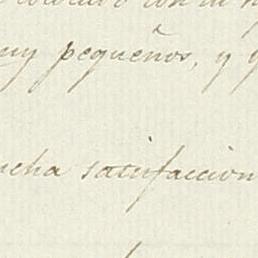 con su
muy pequeños, y
mucha satisfaccion